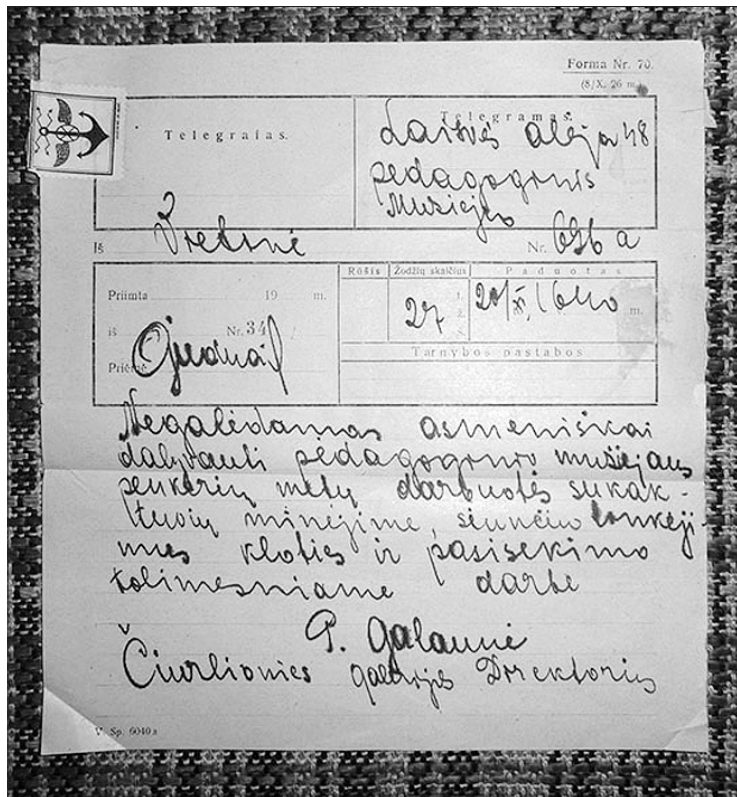 Forma Nr. 70.
(8/X. 26 m.)
Telegrafas.
Telegramas.
Laisvės alėja 48
pedagoginis
Muziejus
Iš
Nr. 696 a
Priimta 19 m.
iš Nr. 34
Priėmė
Rūšis
Žodžių skaičius
27
Paduotas
m.
Tarnybos pastabos
Negalėdamas asmeniškai
dalyvauti pedagoginio muziejaus
penkerių metų darbuotės sukak-
tuvių minėjime, siunčiu linkėji-
mus kloties ir pasisekimo
tolimesniame darbe
P. Galaunė
Čiurlionies galerijos Direktorius
V. Sp. 6040 s